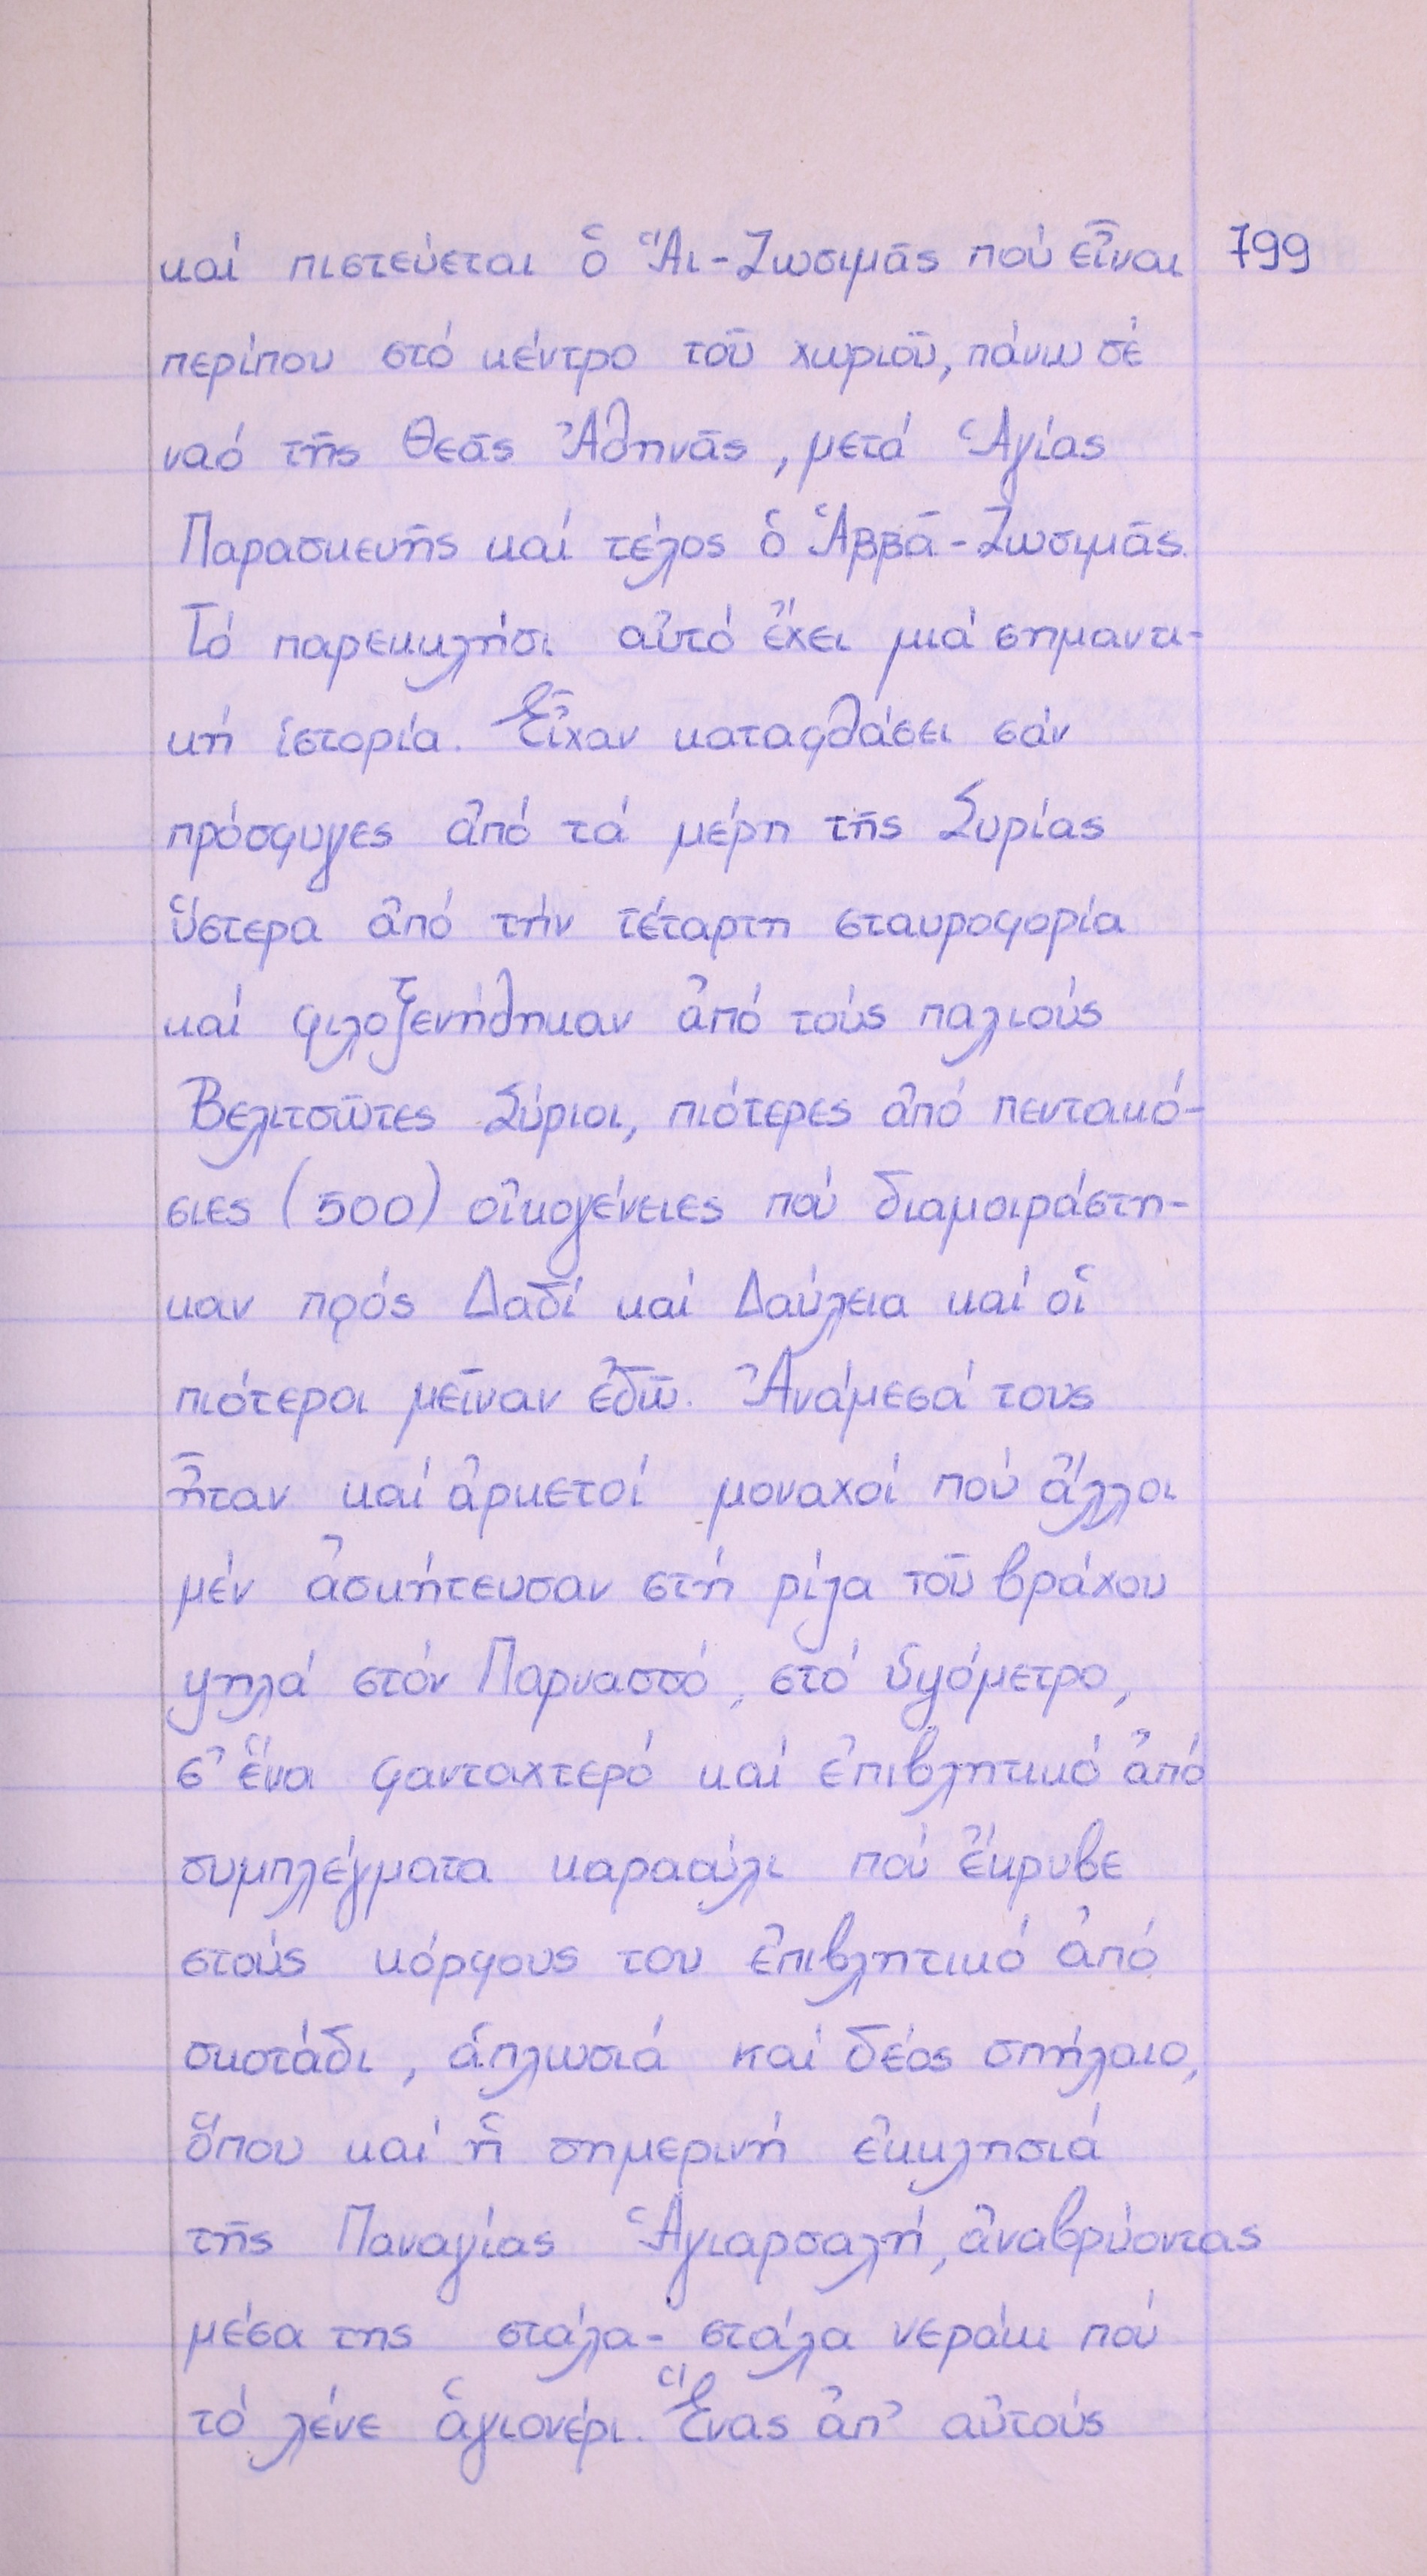 καί πιστεύεται ὁ Ἅι-Ζωσιμᾶς πού εἶναι 799
περίπου στό κέντρο τοῦ χωριοῦ, πάνω σέ
ναό τῆς Θεᾶς Ἀθηνᾶς, μετά Ἁγίας
Παρασκευῆς καί τέλος ὁ Ἁββᾶ-Ζωσιμᾶς.
Τό παρεκκλήσι αὐτό ἔχει μιά σημαντι-
κή ἱστορία. Εἶχαν καταφθάσει σάν
πρόσφυγες ἀπό τά μέρη τῆς Συρίας
ὕστερα ἀπό τήν τέταρτη σταυροφορία
καί φιλοξενήθηκαν ἀπό τούς παλιούς
Βελιτσῶτες Σύριοι, πιότερες ἀπό πεντακό-
σιες (500) οἰκογένειες πού διαμοιράστη-
καν πρός Δαδί καί Δαύλεια καί οἱ
πιότεροι μεῖναν ἐδῶ. Ἀνάμεσά τους
ἦταν καί ἀρκετοί μοναχοί πού ἄλλοι
μέν ἀσκήτευσαν στή ρίζα τοῦ βράχου
ψηλά στόν Παρνασσό, στό ὑψόμετρο,
σ' ἕνα φανταχτερό καί ἐπιβλητικό ἀπό
συμπλέγματα καραούλι πού ἔκρυβε
στούς κόρφους του ἐπιβλητικό ἀπό
σκοτάδι, ἁπλωσιά καί δέος σπήλαιο,
ὅπου καί ἡ σημερινή ἐκκλησιά
τῆς Παναγίας Ἁγιαρσαλή, ἀναβρύοντας
μέσα της στάλα-στάλα νεράκι πού
τό λένε ἁγιονέρι. Ἕνας ἀπ' αὐτούς